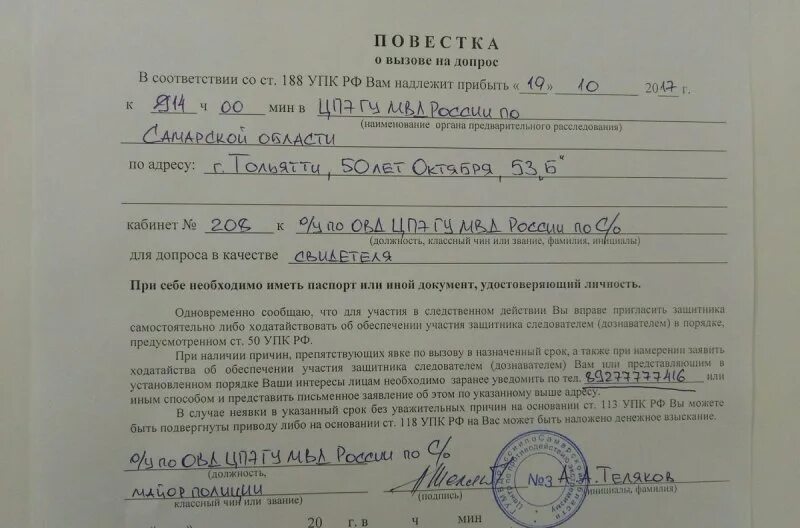 ПОВЕСТКА
о вызове на допрос
В соответствии со ст. 188 УПК РФ Вам надлежит прибыть «19» 10 2017 г.
к 14 ч 00 мин в ЦПЭ ГУ МВД России по
(наименование органа предварительного расследования)
Самарской области
по адресу: г. Тольятти, 50 лет Октября, 53 „Б“
кабинет № 208 к о/у по ОВД ЦПЭ ГУ МВД России по С/о
(должность, классный чин или звание, фамилия, инициалы)
для допроса в качестве свидетеля
При себе необходимо иметь паспорт или иной документ, удостоверяющий личность.
Одновременно сообщаю, что для участия в следственном действии Вы вправе пригласить защитника
самостоятельно либо ходатайствовать об обеспечении участия защитника следователем (дознавателем) в порядке,
предусмотренном ст. 50 УПК РФ.
При наличии причин, препятствующих явке по вызову в назначенный срок, а также при намерении заявить
ходатайства об обеспечении участия защитника следователем (дознавателем) Вам или представляющим в
установленном порядке Ваши интересы лицам необходимо заранее уведомить по тел. 89277777416 или
иным способом и представить письменное заявление об этом по указанному выше адресу.
В случае неявки в указанный срок без уважительных причин на основании ст. 113 УПК РФ Вы можете
быть подвергнуты приводу либо на основании ст. 118 УПК РФ на Вас может быть наложено денежное взыскание.
о/у по ОВД ЦПЭ ГУ МВД России по С/о
(должность,
майор полиции
классный чин или звание)
(подпись)
№3
А.А. Теляков
инициалы, фамилия)
20 г. в ч мин